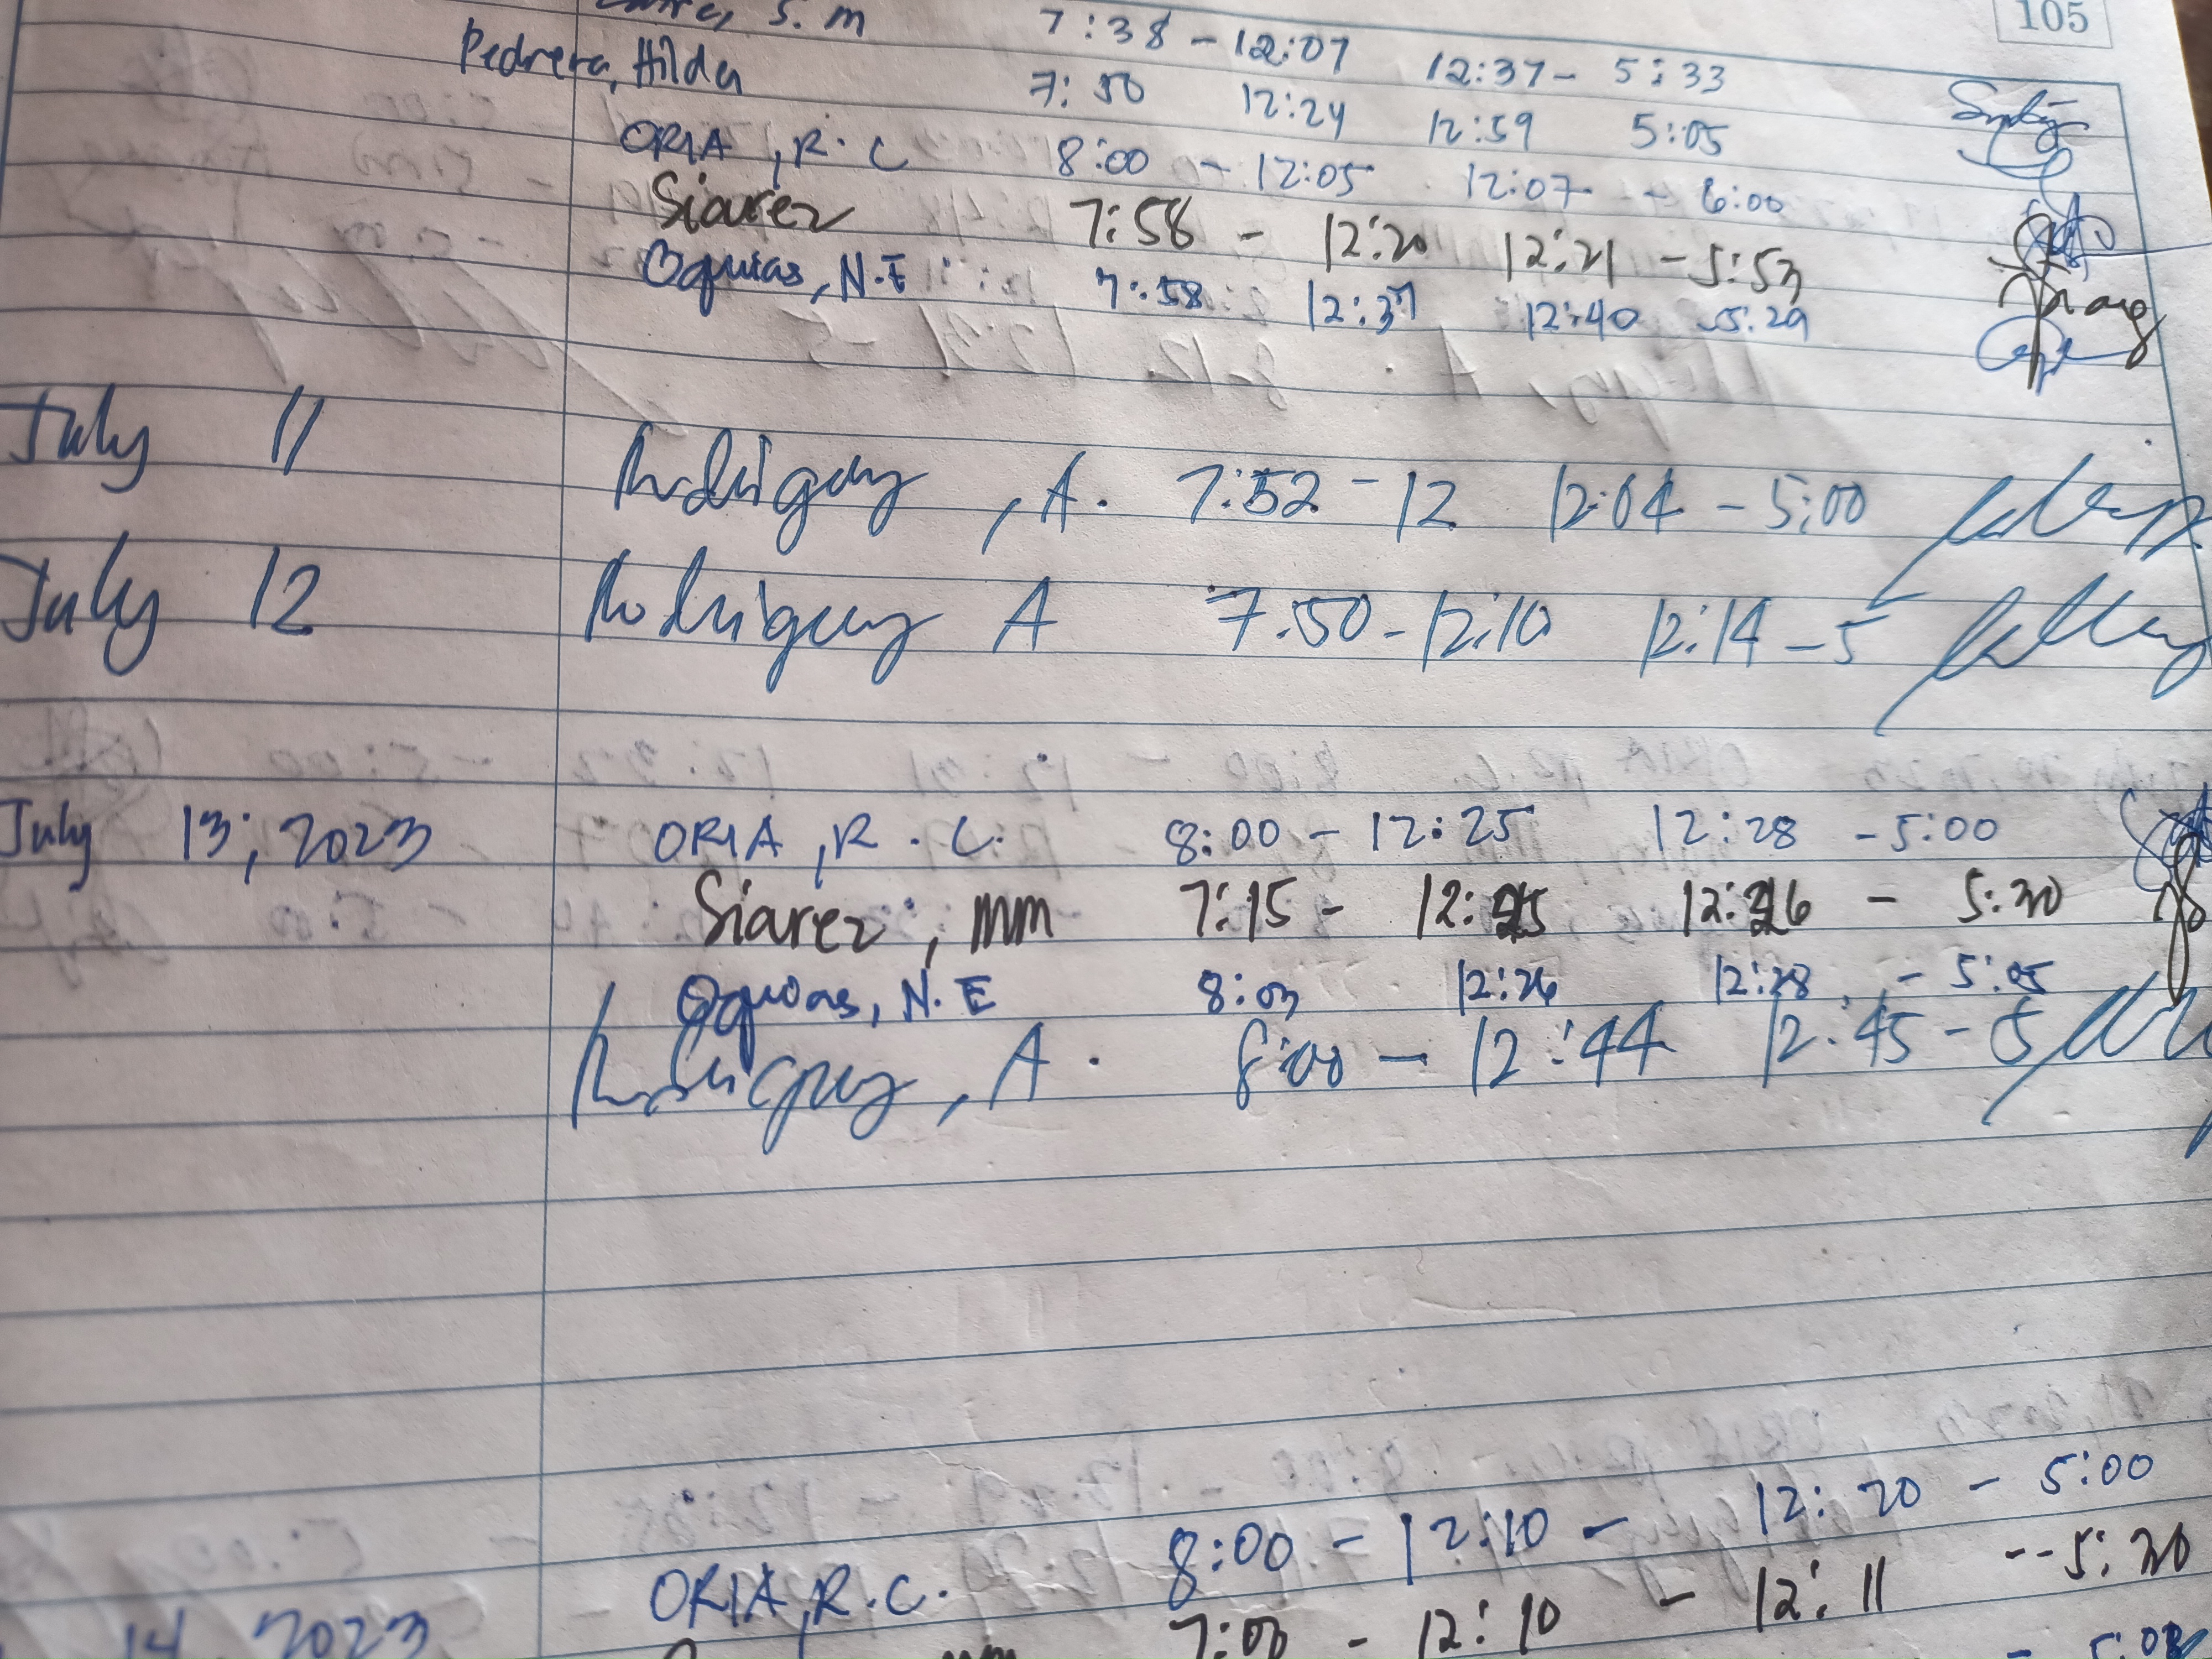 105
S. m 7:38 - 12:07 12:37 - 5:33
Pedrera, Hilda 7:50 12:24 12:59 5:05
ORIA, R. C 8:00 - 12:05 12:07 - 6:00
Siarez 7:58 - 12:20 12:21 - 5:53
Oquias, N.E 7:58 12:37 12:40 5:29
July 11 Rodriguez, A. 7:52 - 12 12:04 - 5:00
July 12 Rodriguez A 7:50 - 12:10 12:14 - 5
July 13, 2023 ORIA, R. C. 8:00 - 12:25 12:28 - 5:00
Siarez, MM 7:15 - 12:25 12:26 - 5:30
Oquias, N.E 8:03 12:26 12:28 - 5:05
Rodriguez, A. 8:00 - 12:44 12:45 - 5
14, 2023 ORIA, R.C. 8:00 - 12:10 - 12:20 - 5:00
7:00 - 12:10 - 12:11 -- 5:30